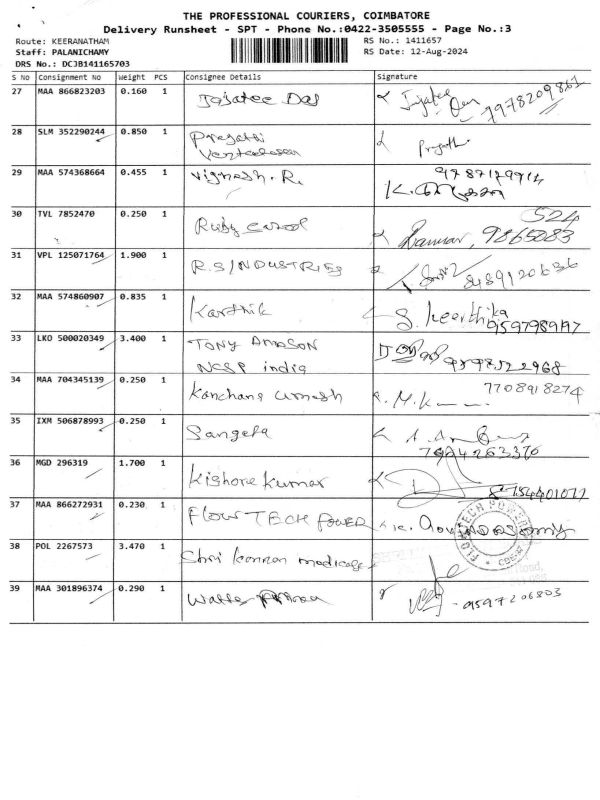 THE PROFESSIONAL COURIERS, COIMBATORE
Delivery Runsheet - SPT - Phone No.:0422-3505555 - Page No.:3
Route: KEERANATHAM RS No.: 1411657
Staff: PALANICHAMY RS Date: 12-Aug-2024
DRS No.: DCJB141165703
S No Consignment No Weight PCS Consignee Details Signature
27 MAA 866823203 0.160 1 Jajatee Das 7978209861
28 SLM 352290244 0.850 1 Pregathi
29 MAA 574368664 0.455 1 Vighnesh. R. 9787129914
30 TVL 7852470 0.250 1 Ruby carol 9865083 524
31 VPL 125071764 1.900 1 R.S INDUSTRIES 8489120636
32 MAA 574860907 0.835 1 Karthik S. Keerthika
9597989197
33 LKO 500020349 3.400 1 TONY AMASON 9597522968
NCSP india
34 MAA 704345139 0.250 1 Kanchana umesh 7708918274
35 IXM 506878993 0.250 1 Sangeta
36 MGD 296319 1.700 1 Kishore Kumar
37 MAA 866272931 0.230 1 FLOW TECH POWER
38 POL 2267573 3.470 1 Shri kannan medicals
39 MAA 301896374 0.290 1 9597206803